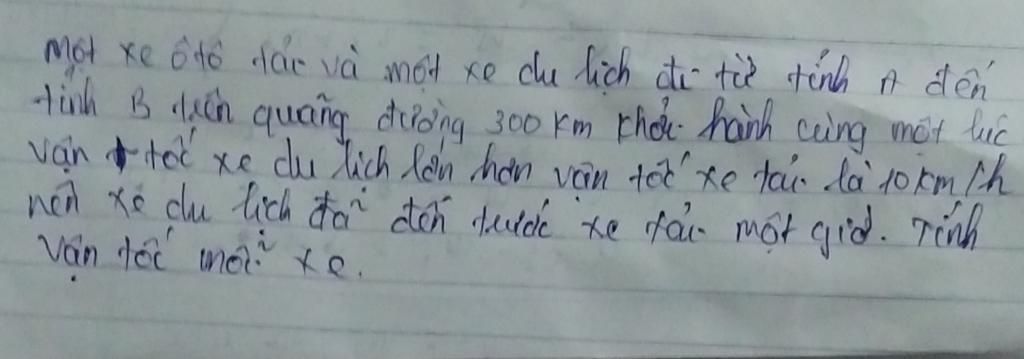 Một xe ôtô tải và một xe du lịch đi từ tỉnh A đến
tỉnh B trên quãng đường 300 km khởi hành cùng một lúc
vận tốc xe du lịch lớn hơn vận tốc xe tải là 10km/h
nên xe du lịch đã đến trước xe tải một giờ. Tính
vận tốc mỗi xe.